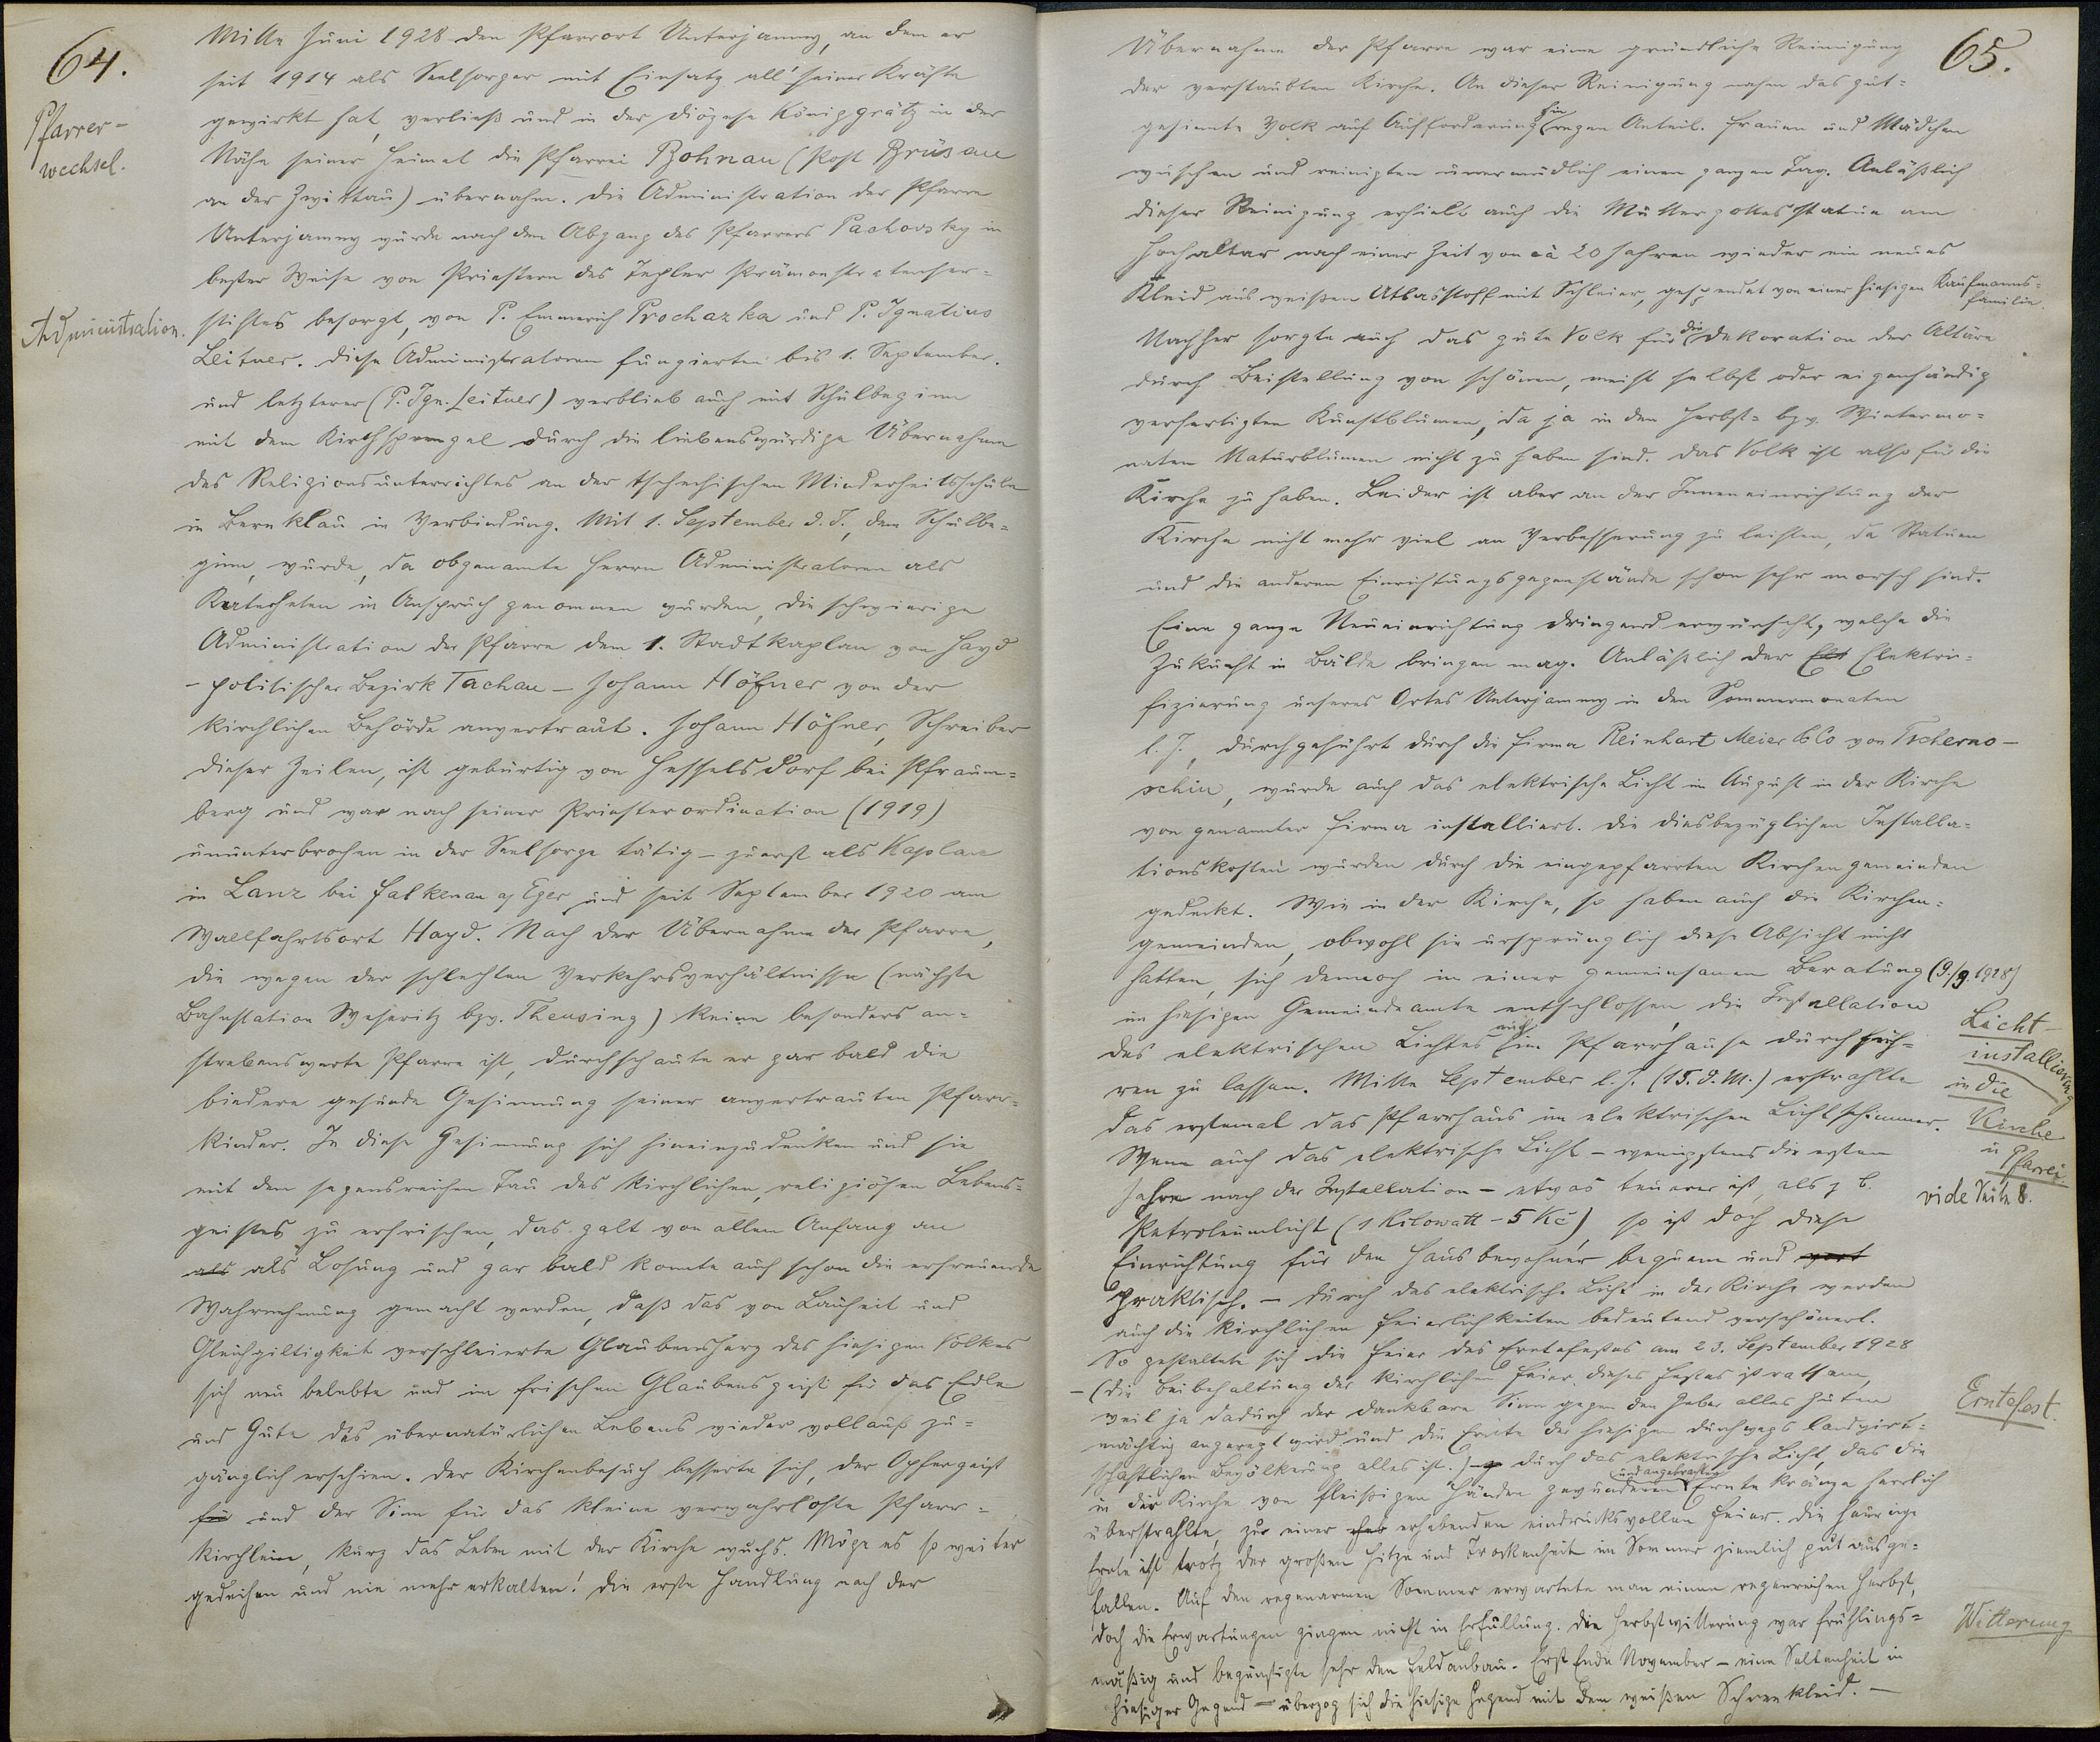 64.
Pfarrer-
wechsel.
Mitte Juni 1928 den Pfarrort Unterjamny, an dem er
seit 1914 als Seelsorger mit Einsatz all' seiner Kräfte
gewirkt hat, verließ und in der Diözese Königgrätz in der
Nähe seiner Heimat die Pfarrei Bohnau (Post Brüsau
an der Zwittau) übernahm. Die Administration der Pfarre
Unterjamny wurde nach dem Abgang des Pfarrers Pachovsky in
bester Weise von Priestern des Tepler Prämonstratenser-
Administration.
stiftes besorgt, von P. Emmerich Prochazka und P. Ignatius
Leitner. Diese Administratoren fungierten bis 1. September.
und letzterer (P. Ign. Leitner) verblieb auch mit Schulbeginn
mit dem Kirchsprengel durch die liebenswürdige Übernahme
des Religionsunterrichtes an der tschechischen Minderheitsschule
in Bernklau in Verbindung. Mit 1. September d. J., dem Schulbe-
ginn, wurde, da obgenannte Herren Administratoren als
Katecheten in Anspruch genommen wurden, die schwierige
Administration der Pfarre dem 1. Stadtkaplan von Hayd
- politischer Bezirk Tachau - Johann Höfner von der
kirchlichen Behörde anvertraut. Johann Höfner, Schreiber
dieser Zeilen, ist gebürtig von Hesselsdorf bei Pfraum-
berg und war nach seiner Priesterordination (1919)
ununterbrochen in der Seelsorge tätig - zuerst als Kaplan
in Lanz bei Falkenau a/Eger und seit September 1920 am
Wallfahrtsort Hayd. Nach der Übernahme der Pfarre,
die wegen der schlechten Verkehrsverhältnisse (nächste
Bahnstation Weseritz bzw. Theusing) keine besonders an-
strebenswerte Pfarre ist, durchschaute er gar bald die
biedere gesunde Gesinnung seiner anvertrauten Pfarr-
kinder. In diese Gesinnung sich hineinzudenken und sie
mit dem segensreichen Tau des kirchlichen, religiösen Lebens-
geistes zu erfrischen, das galt von allem Anfang an
als als Losung und gar bald konnte auch schon die erfreuende
Wahrnehmung gemacht werden, daß das von Lauheit und
Gleichgiltigkeit verschleierte Glaubensherz des hiesigen Volkes
sich neu belebte und im frischen Glaubensgeist für das Edle
und Gute des übernatürlichen Lebens wieder vollauf zu-
gänglich erschien. Der Kirchenbesuch besserte sich, der Opfergeist
für und der Sinn für das kleine verwahrloste Pfarr-
kirchlein, kurz das Leben mit der Kirche wuchs. Möge es so weiter
gedeihen und nie mehr erkalten! Die erste Handlung nach der
65.
Übernahme der Pfarre war eine gründliche Reinigung
der verstaubten Kirche. An dieser Reinigung nahm das gut-
gesinnte Volk auf Aufforderung hin regen Anteil. Frauen und Mädchen
wuschen und reinigten unermüdlich einen ganzen Tag. Anläßlich
dieser Reinigung erhielt auch die Muttergottesstatue am
Hochaltar nach einer Zeit von cà 20 Jahren wieder ein neues
Kleid aus weißen Atlasstoff mit Schleier, gespendet von einer hiesigen Kaufmanns-
familie.
Nachher sorgte auch das gute Volk für die Dekoration der Altäre
durch Beistellung von schönen, meist selbst oder eigenhändig
verfertigten Kunstblumen, da ja in den Herbst- bzw. Wintermo-
naten Naturblumen nicht zu haben sind. Das Volk ist also für die
Kirche zu haben. Leider ist aber an der Inneneinrichtung der
Kirche nicht mehr viel an Verbesserung zu leisten, da Statuen
und die anderen Einrichtungsgegenstände schon sehr morsch sind.
Eine ganze Neueinrichtung dringend erwünscht, welche die
Zukunft in Bälde bringen mag. Anläßlich der Elektri-
fizierung unseres Ortes Unterjamny in den Sommermonaten
l. J., durchgeführt durch die Firma Reinhart Meier & Co von Tscherno-
schin, wurde auch das elektrische Licht im August in der Kirche
von genannter Firma installiert. Die diesbezüglichen Installa-
tionskosten wurden durch die eingepfarrten Kirchengemeinden
gedeckt. Wie in der Kirche, so haben auch die Kirchen-
gemeinden, obwohl sie ursprünglich diese Absicht nicht
hatten, sich dennoch in einer gemeinsamen Beratung (9./9. 1928)
im hiesigen Gemeindeamte entschlossen, die Installation
des elektrischen Lichtes auch im Pfarrhause durchfüh-
ren zu lassen. Mitte September l. J. (15. d. M.) erstrahlte
das erstemal das Pfarrhaus im elektrischen Lichtschimmer.
Licht-
installierung
in die
Kirche
u Pfarrei.
vide Seite 8.
Wenn auch das elektrische Licht - wenigstens die ersten
Jahre nach der Installation - etwas teuerer ist, als z b.
Petroleumlicht (1 Kilowatt - 5 Kč), so ist doch diese
Einrichtung für den Hausbewohner bequem und
praktisch. - Durch das elektrische Licht in der Kirche werden
auch die kirchlichen Feierlichkeiten bedeutend verschönert.
So gestaltete sich die Feier des Erntefestes am 23. September 1928
- (die Beibehaltung der kirchlichen Feier dieses Festes ist ratsam,
weil ja dadurch der dankbare Sinn gegen den Geber alles Guten
mächtig angeregt wird und die Ernte der hiesigen durchwegs landwirt-
schaftlichen Bevölkerung alles ist.) - durch das elektrische Licht, das die
in der Kirche von fleißigen Händen gewundenen und angebrachten Erntekränze herrlich
überstrahlte, zur einer erhebenden eindrucksvollen Feier. Die heurige
Ernte ist trotz der großen Hitze und Trockenheit im Sommer ziemlich gut ausge-
fallen. Auf den regenarmen Sommer erwartete man einen regenreichen Herbst,
doch die Erwartungen gingen nicht in Erfüllung. Die Herbstwitterung war frühlings-
mäßig und begünstigte sehr den Feldanbau. Erst Ende November - eine Seltenheit in
hiesiger Gegend - überzog sich die hiesige Gegend mit dem weißen Schneekleid. -
Erntefest.
Witterung